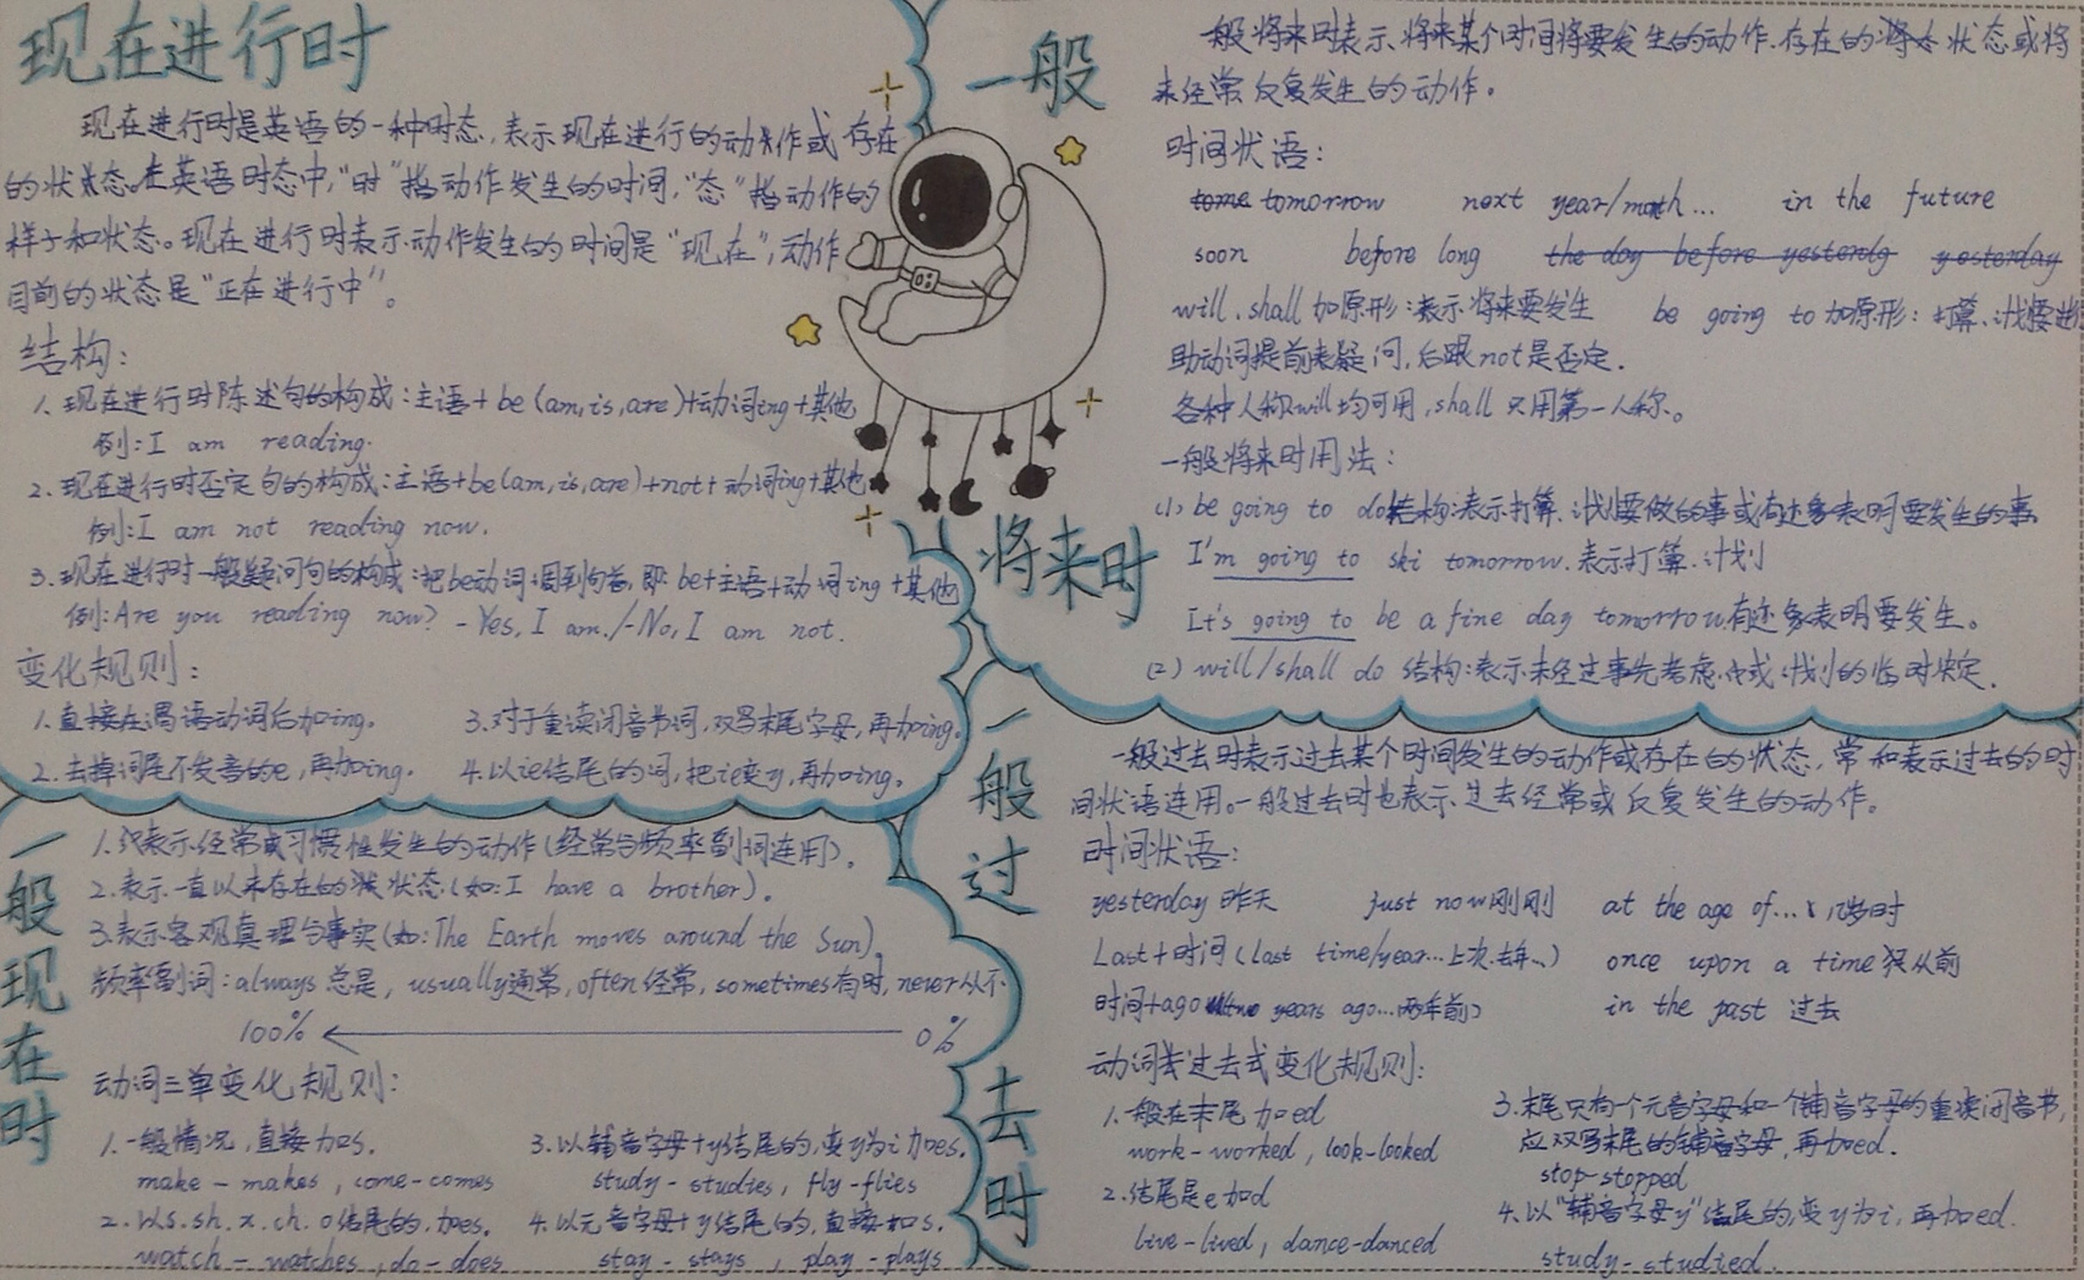 现在进行时
现在进行时是英语的一种时态,表示现在进行的动作或存在
的状态。在英语时态中,“时”指动作发生的时间,“态”指动作的
样子和状态。现在进行时表示动作发生的时间是“现在”,动作
目前的状态是“正在进行中”。
结构:
1、现在进行时陈述句的构成:主语+be(am,is,are)+动词ing+其他
例:I am reading.
2.现在进行时否定句的构成:主语+be(am,is,are)+not+动词ing+其他
例:I am not reading now.
3.现在进行时一般疑问句的构成:把be动词调到句首,即:be+主语+动词ing+其他
例:Are you reading now? -Yes, I am./-No, I am not.
变化规则:
1.直接在谓语动词后加ing。
2.去掉词尾不发音的e,再加ing.
3.对于重读闭音节词,双写末尾字母,再加ing。
4.以ie结尾的词,把ie变y,再加ing。
一般
将来时
一般将来时表示将来某个时间将要发生的动作.存在的状态或将
来经常反复发生的动作。
时间状语:
tomorrow next year/month... in the future
soon before long the day before yesterdy yesterday
will、shall加原形:表示将来要发生 be going to加原形:打算、计划要进
助动词提前表疑问,后跟not是否定.
各种人称will均可用,shall只用第一人称。
一般将来时用法:
(1) be going to do结构:表示打算、计划要做的事或有迹象表明要发生的事.
I'm going to ski tomorrow.表示打算.计划
It's going to be a fine day tomorrow.有迹象表明要发生。
(2) will/shall do 结构:表示未经过事先考虑或计划的临时决定.
一般现在时
1.表示经常或习惯性发生的动作(经常与频率副词连用)。
2.表示一直以来存在的状态(如:I have a brother)。
3.表示客观真理与事实(如:The Earth moves around the Sun)。
频率副词:always总是, usually通常,often经常,sometimes有时,never从不
100% 0%
动词三单变化规则:
1.一般情况,直接加s.
make-makes, come-comes
2.以s.sh.x.ch.o结尾的.加es.
watch-watches, do-does
3.以辅音字母+y结尾的,变y为i加es.
study-studies, fly-flies
4.以元音字母+y结尾的,直接加s.
stay-stays, play-plays
一般过去时
一般过去时表示过去某个时间发生的动作或存在的状态,常和表示过去的时
间状语连用。一般过去时也表示过去经常或反复发生的动作。
时间状语:
yesterday昨天 just now刚刚 at the age of... 几岁时
Last+时间(last time/year...上次.去年...) once upon a time 从前
时间+ago two years ago...两年前) in the past 过去
动词过去式变化规则:
1.一般在末尾加ed
work-worked, look-looked
2.结尾是e加d
live-lived, dance-danced
3.末尾只有一个元音字母和一个辅音字母的重读闭音节,
应双写末尾的辅音字母,再加ed.
stop-stopped
4.以“辅音字母y”结尾的,变y为i,再加ed.
study-studied.